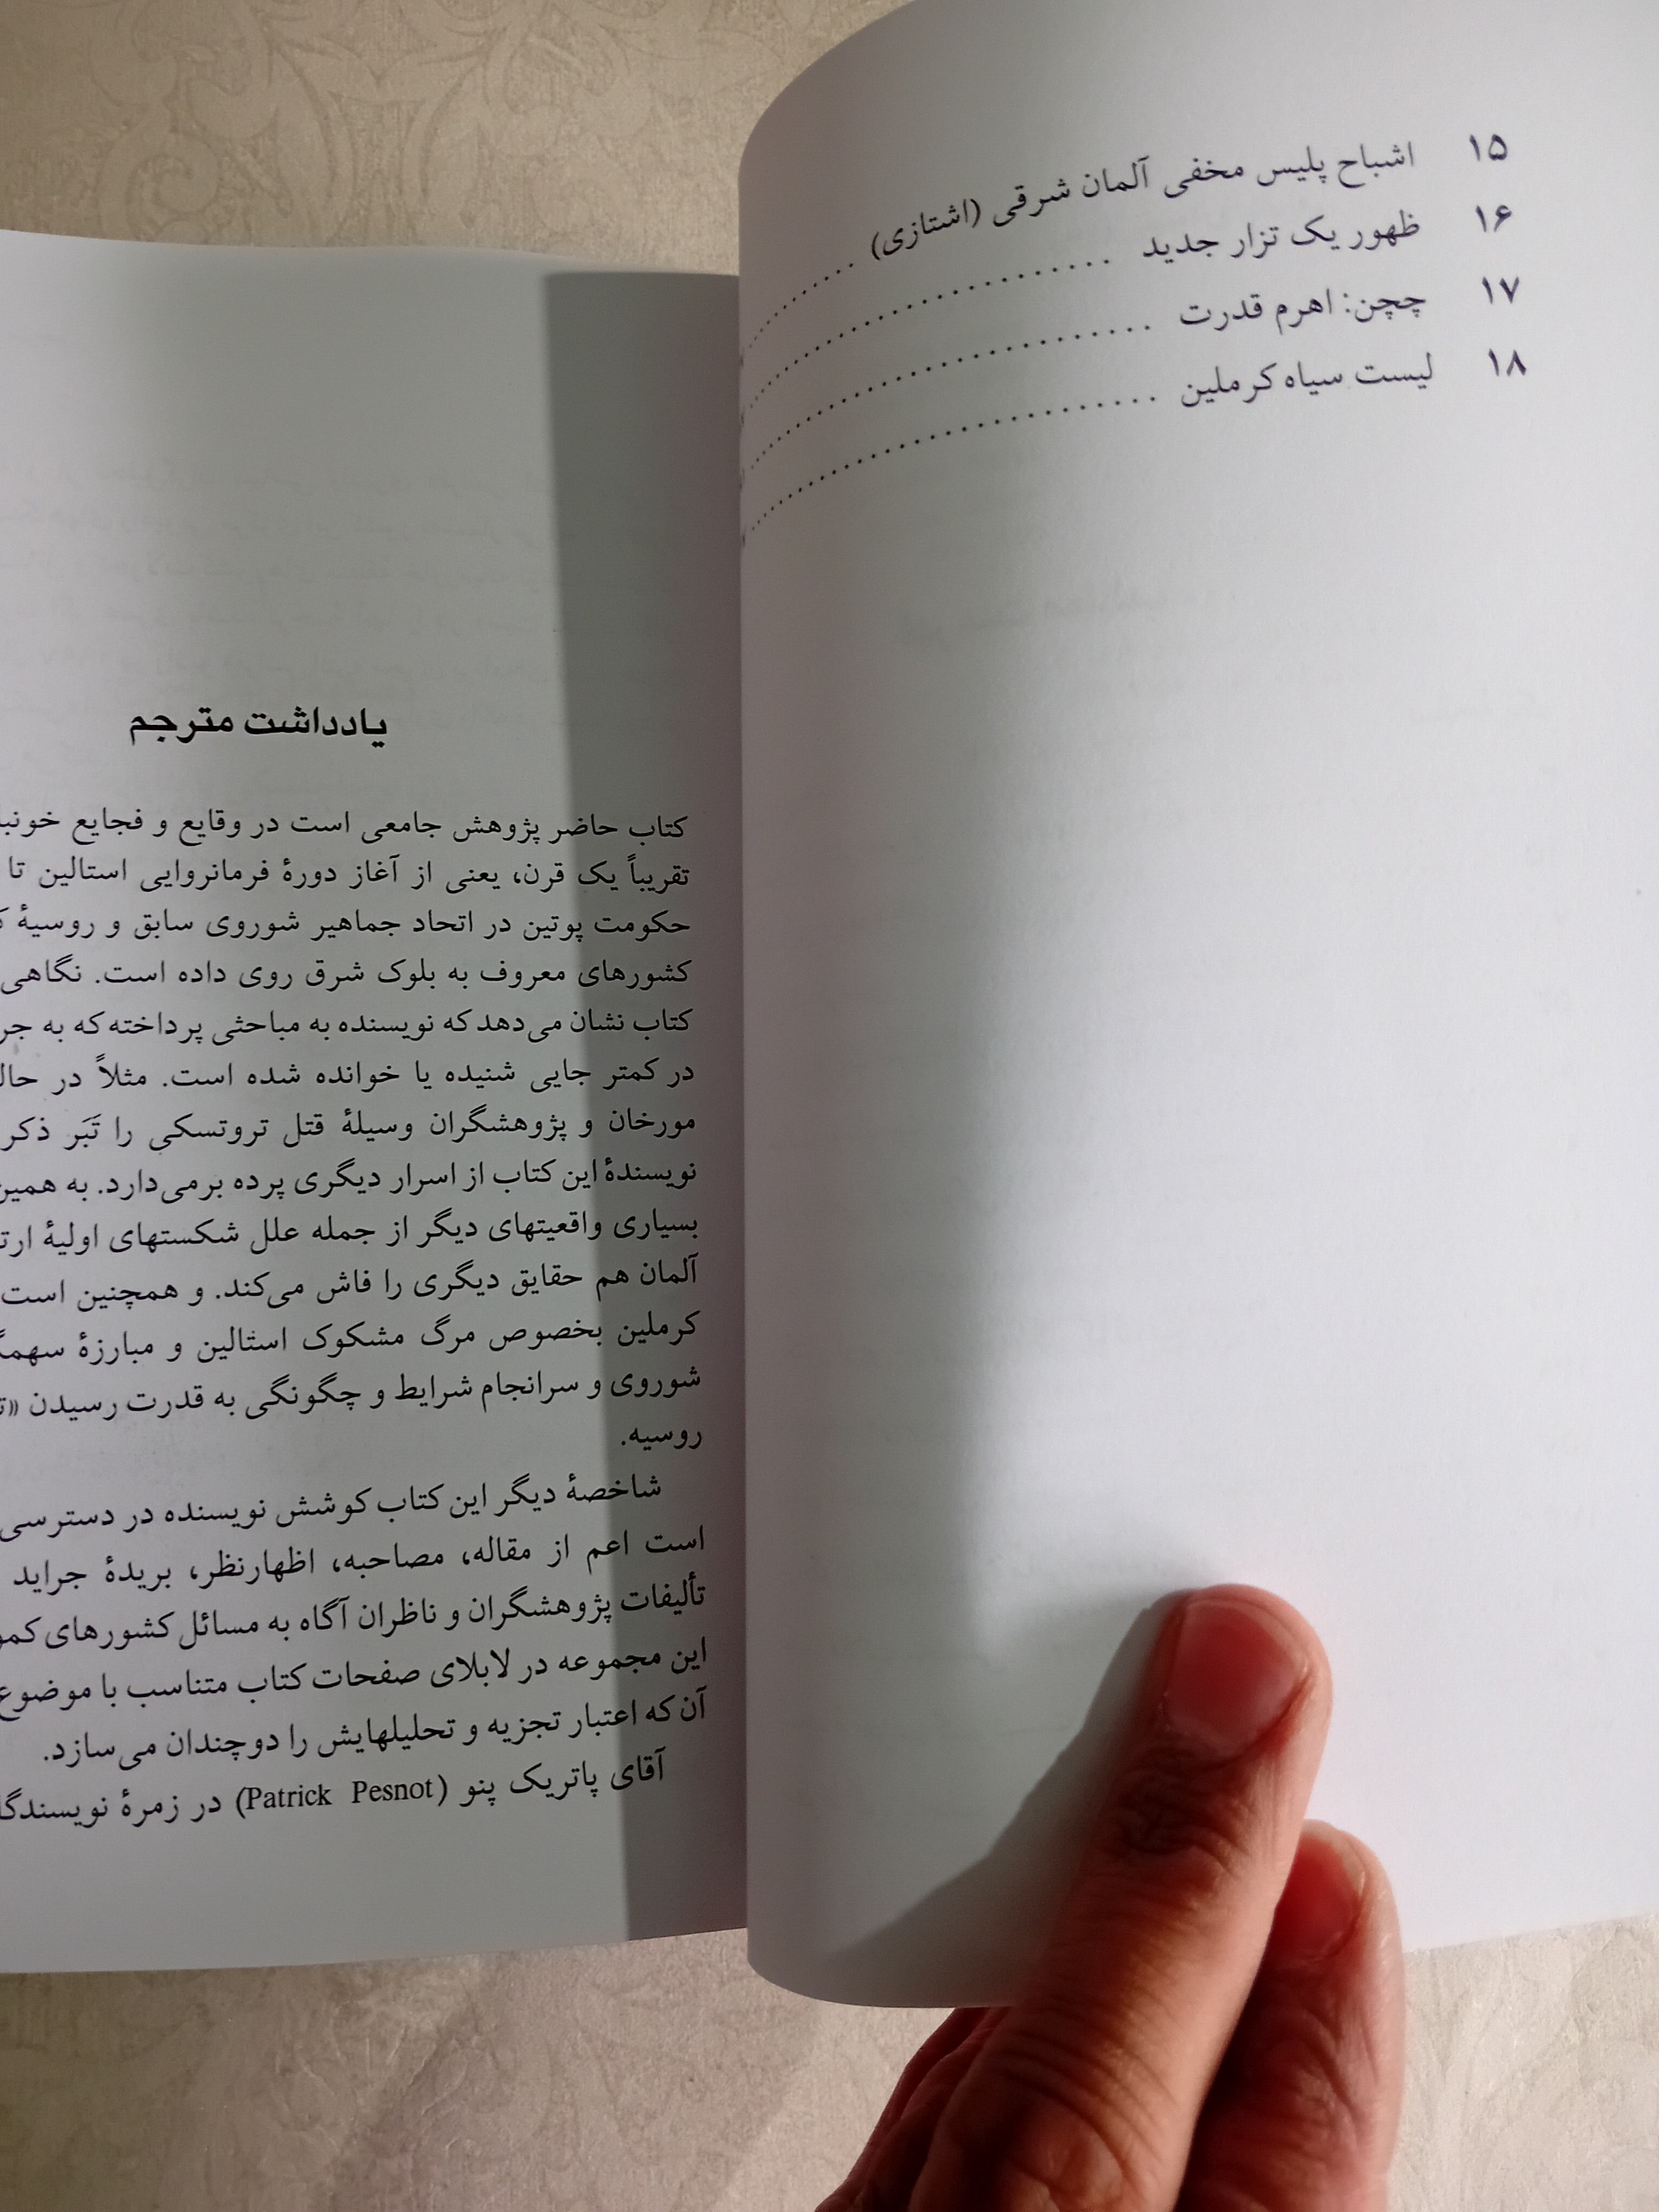 ۱۵ اشباح پلیس مخفی آلمان شرقی (اشتازی)
۱۶ ظهور یک تزار جدید
۱۷ چچن: اهرم قدرت
۱۸ لیست سیاه کرملین
یادداشت مترجم
کتاب حاضر پژوهش جامعی است در وقایع و فجایع
تقریباً یک قرن، یعنی از آغاز دورهٔ فرمانروایی استالین تا
حکومت پوتین در اتحاد جماهیر شوروی سابق و روسیهٔ
کشورهای معروف به بلوک شرق روی داده است. نگاهی
کتاب نشان می‌دهد که نویسنده به مباحثی پرداخته که به
در کمتر جایی شنیده یا خوانده شده است. مثلاً در
مورخان و پژوهشگران وسیلهٔ قتل تروتسکی را تَبَر ذکر
نویسندهٔ این کتاب از اسرار دیگری پرده برمی‌دارد. به
بسیاری واقعیتهای دیگر از جمله علل شکستهای اولیهٔ
آلمان هم حقایق دیگری را فاش می‌کند. و همچنین است
کرملین بخصوص مرگ مشکوک استالین و مبارزهٔ
شوروی و سرانجام شرایط و چگونگی به قدرت رسیدن
روسیه.
شاخصهٔ دیگر این کتاب کوشش نویسنده در دسترسی
است اعم از مقاله، مصاحبه، اظهارنظر، بریدهٔ جراید
تألیفات پژوهشگران و ناظران آگاه به مسائل کشورهای
این مجموعه در لابلای صفحات کتاب متناسب با موضوع
آن که اعتبار تجزیه و تحلیلهایش را دوچندان می‌سازد.
آقای پاتریک پنو (Patrick Pesnot) در زمرهٔ